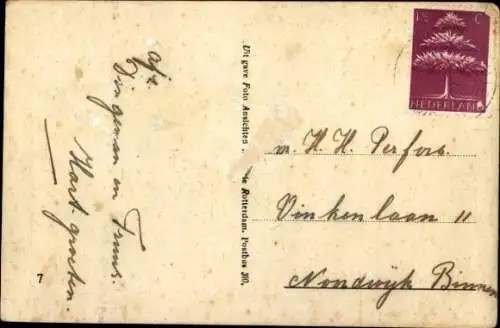 afz.
Dingeman en Truus.
Hart. groeten.
7
Uitgave Foto Ansichten.
Rotterdam. Postbus 310.
1½ C
NEDERLAND
m. H. H. Perfors.
Vinkenlaan 11
Noordwijk Binnen